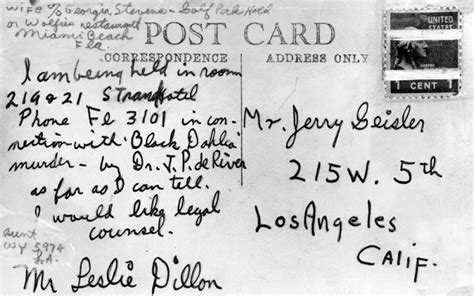 Wife c/o Georgia Stevens - Golf Park Hotel
or Wolfies restaurant
Miami Beach
Fla.
POST CARD
CORRESPONDENCE
ADDRESS ONLY
UNITED STATES
1 CENT
I am being held in room
219 & 21 Strand Hotel
Phone Fe 3101 in con-
nection with 'Black Dahlia'
murder - by Dr. J. P. de River
as far as I can tell.
I would like legal
counsel.
aunt
WY 5974
L.A.
Mr Leslie Dillon
Mr. Jerry Geisler
215 W. 5th
Los Angeles
Calif.